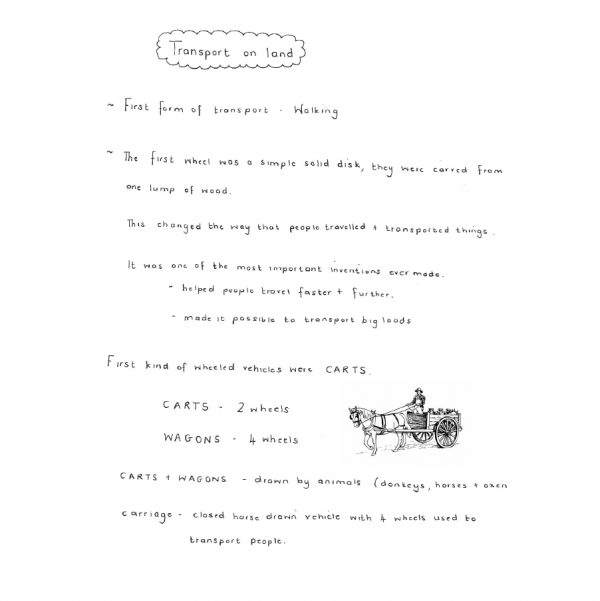 Transport on land
~ First form of transport - Walking
~ The first wheel was a simple solid disk, they were carved from
one lump of wood.
This changed the way that people travelled + transported things.
It was one of the most important inventions ever made.
- helped people travel faster + further.
- made it possible to transport big loads
First kind of wheeled vehicles were CARTS.
CARTS - 2 wheels
WAGONS - 4 wheels
CARTS + WAGONS - drawn by animals (donkeys, horses + oxen
carriage - closed horse drawn vehicle with 4 wheels used to
transport people.